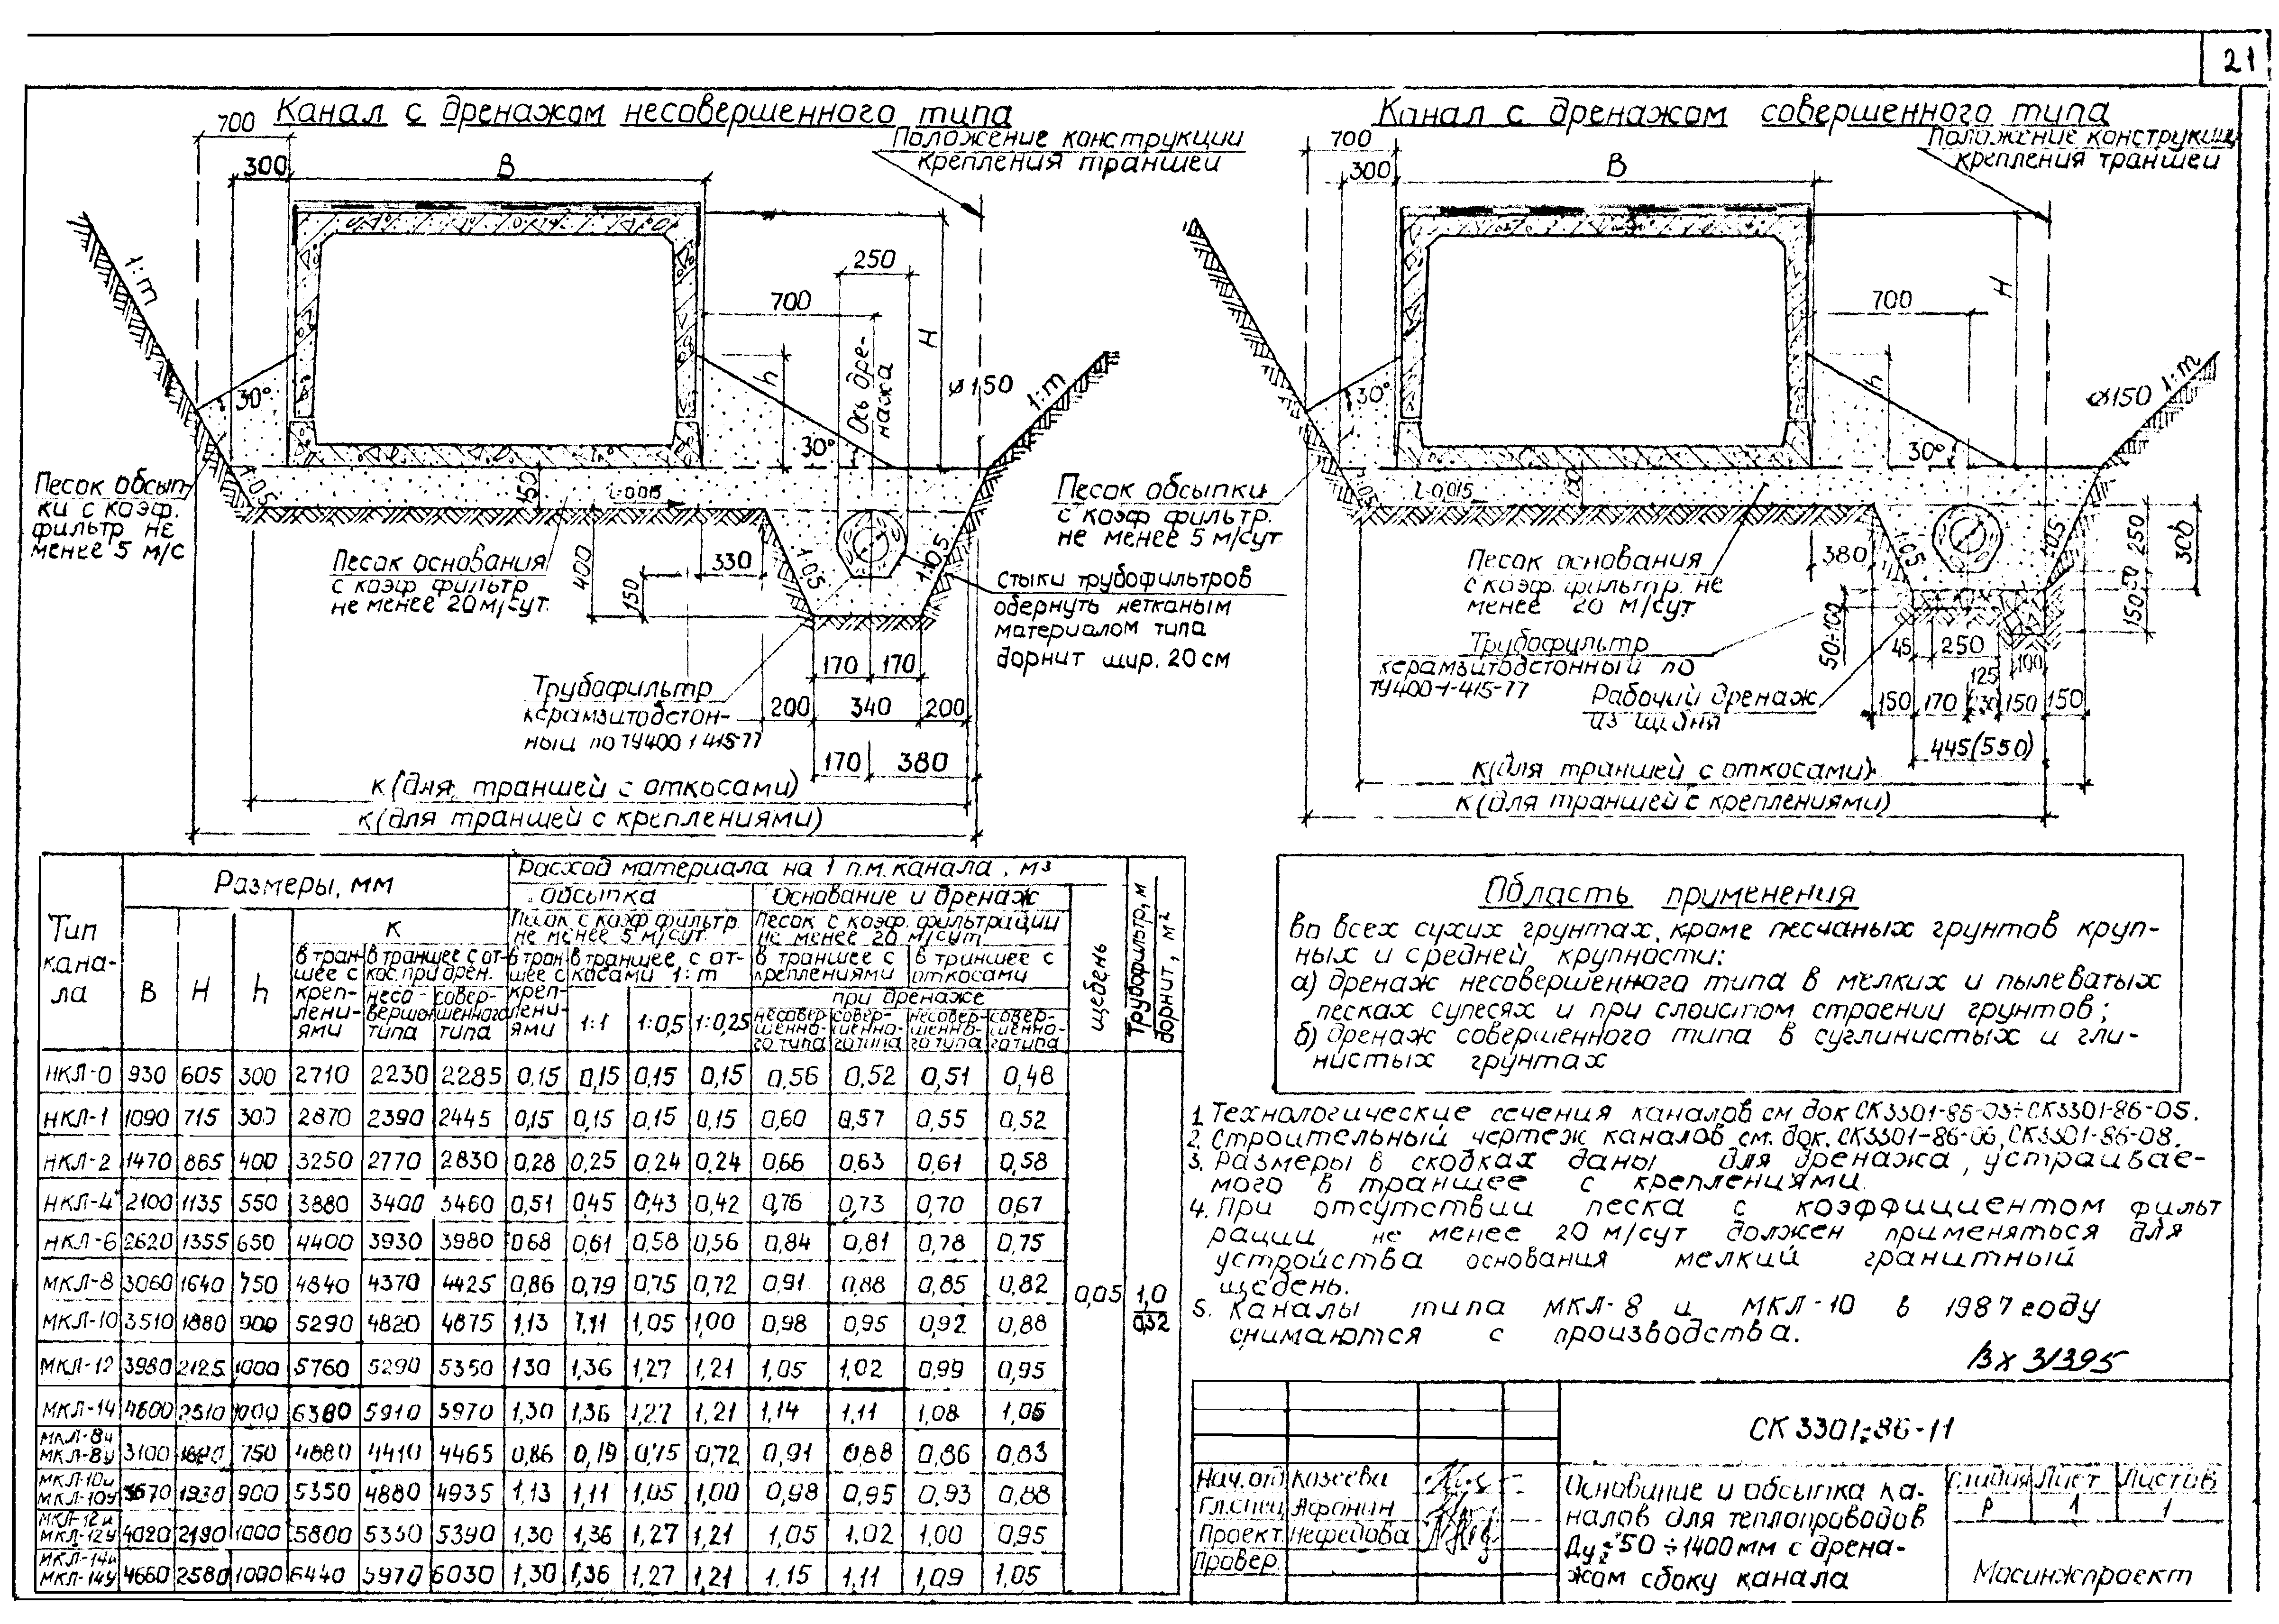 21
Канал с дренажом несовершенного типа
700
300
B
Положение конструкции
крепления траншеи
1:m
250
700
H
h
Ось дре-
нажа
ø150
1:m
30°
30°
Песок обсып-
ки с коэф.
фильтр не
менее 5 м/с
1:05
150
i-0,015
Песок основания
с коэф фильтр
не менее 20м/сут.
400
150
330
1:05
1:05
Стыки трубофильтров
обернуть нетканым
материалом типа
дорнит шир. 20 см
Трубофильтр
керамзитобетон-
ный по ТУ400 1 415-77
170 170
200 340 200
170 380
к (для траншей с откосами)
к (для траншей с креплениями)
Канал с дренажом совершенного типа
700
300
B
Положение конструкци
крепления траншеи
H
700
h
1:m
ø150
30°
30°
Песок обсыпки
с коэф фильтр.
не менее 5 м/сут
1:05
i-0,015
150
Песок основания
с коэф. фильтр. не
менее 20 м/сут
380
1:05
1:05
250
300
50÷100
Трубофильтр
керамзитобетонный по
ТУ400-1-415-77
Рабочий дренаж
из щебня
45 250
125 100
150 170 (230) 150 150
445(550)
к(для траншей с откосами)
к (для траншей с креплениями)
Тип
кана-
ла
Размеры, мм
B H h
К
в тран-
шее с
креп-
лени-
ями
в траншее с от-
кос. при дрен.
несо-
вершен.
типа
совер-
шенного
типа
Расход материала на 1 п.м. канала, м3
Обсыпка
Песок с коэф фильтр
не менее 5 м/сут.
в тран-
шее с
креп-
лени-
ями
в траншее, с от-
косами 1:m
1:1 1:0,5 1:0,25
Основание и дренаж
Песок с коэф. фильтрации
не менее 20 м/сут
в траншее с
креплениями
в траншее с
откосами
при дренаже
несовер-
шенно-
го типа
совер-
шенно-
го типа
несовер-
шенно-
го типа
совер-
шенно-
го типа
щебень
Трубофильтр, м
дорнит, м²
НКЛ-0 930 605 300 2710 2230 2285 0,15 0,15 0,15 0,15 0,56 0,52 0,51 0,48
НКЛ-1 1090 715 300 2870 2390 2445 0,15 0,15 0,15 0,15 0,60 0,57 0,55 0,52
НКЛ-2 1470 865 400 3250 2770 2830 0,28 0,25 0,24 0,24 0,66 0,63 0,61 0,58
НКЛ-4 2100 1135 550 3880 3400 3460 0,51 0,45 0,43 0,42 0,76 0,73 0,70 0,67
НКЛ-6 2620 1355 650 4400 3930 3980 0,68 0,61 0,58 0,56 0,84 0,81 0,78 0,75
МКЛ-8 3060 1640 750 4840 4370 4425 0,86 0,79 0,75 0,72 0,91 0,88 0,85 0,82
0,05 1,0
0,32
МКЛ-10 3510 1880 900 5290 4820 4875 1,13 1,11 1,05 1,00 0,98 0,95 0,92 0,88
МКЛ-12 3980 2125 1000 5760 5290 5350 1,30 1,36 1,27 1,21 1,05 1,02 0,99 0,95
МКЛ-14 4600 2510 1000 6380 5910 5970 1,30 1,36 1,27 1,21 1,14 1,11 1,08 1,05
МКЛ-8и
МКЛ-8у 3100 750 4880 4410 4465 0,86 0,79 0,75 0,72 0,91 0,88 0,86 0,83
МКЛ-10и
МКЛ-10у 3570 1930 900 5350 4880 4935 1,13 1,11 1,05 1,00 0,98 0,95 0,93 0,88
МКЛ-12и
МКЛ-12у 4020 2190 1000 5800 5330 5390 1,30 1,36 1,27 1,21 1,05 1,02 1,00 0,95
МКЛ-14и
МКЛ-14у 4660 2580 1000 6440 5970 6030 1,30 1,36 1,27 1,21 1,15 1,11 1,09 1,05
Область применения
во всех сухих грунтах, кроме песчаных грунтов круп-
ных и средней крупности:
а) дренаж несовершенного типа в мелких и пылеватых
песках супесях и при слоистом строении грунтов;
б) дренаж совершенного типа в суглинистых и гли-
нистых грунтах
1. Технологические сечения каналов см док СК3301-86-03÷СК3301-86-05.
2. Строительный чертеж каналов см. док. СК3301-86-06, СК3301-86-08.
3. Размеры в скобках даны для дренажа, устраивае-
мого в траншее с креплениями.
4. При отсутствии песка с коэффициентом фильт
рации не менее 20 м/сут должен применяться для
устройства основания мелкий гранитный
щебень.
5. Каналы типа МКЛ-8 и МКЛ-10 в 1987 году
снимаются с производства.
Вх 31395
СК 3301-86-11
Нач.от Казеева
Гл.спец Афонин
Проект. Нефедова
Провер.
Основание и обсыпка ка-
налов для теплопроводов
Ду=50÷1400мм с дрена-
жом сбоку канала
Стадия Лист Листов
Р 1 1
Мосинжпроект